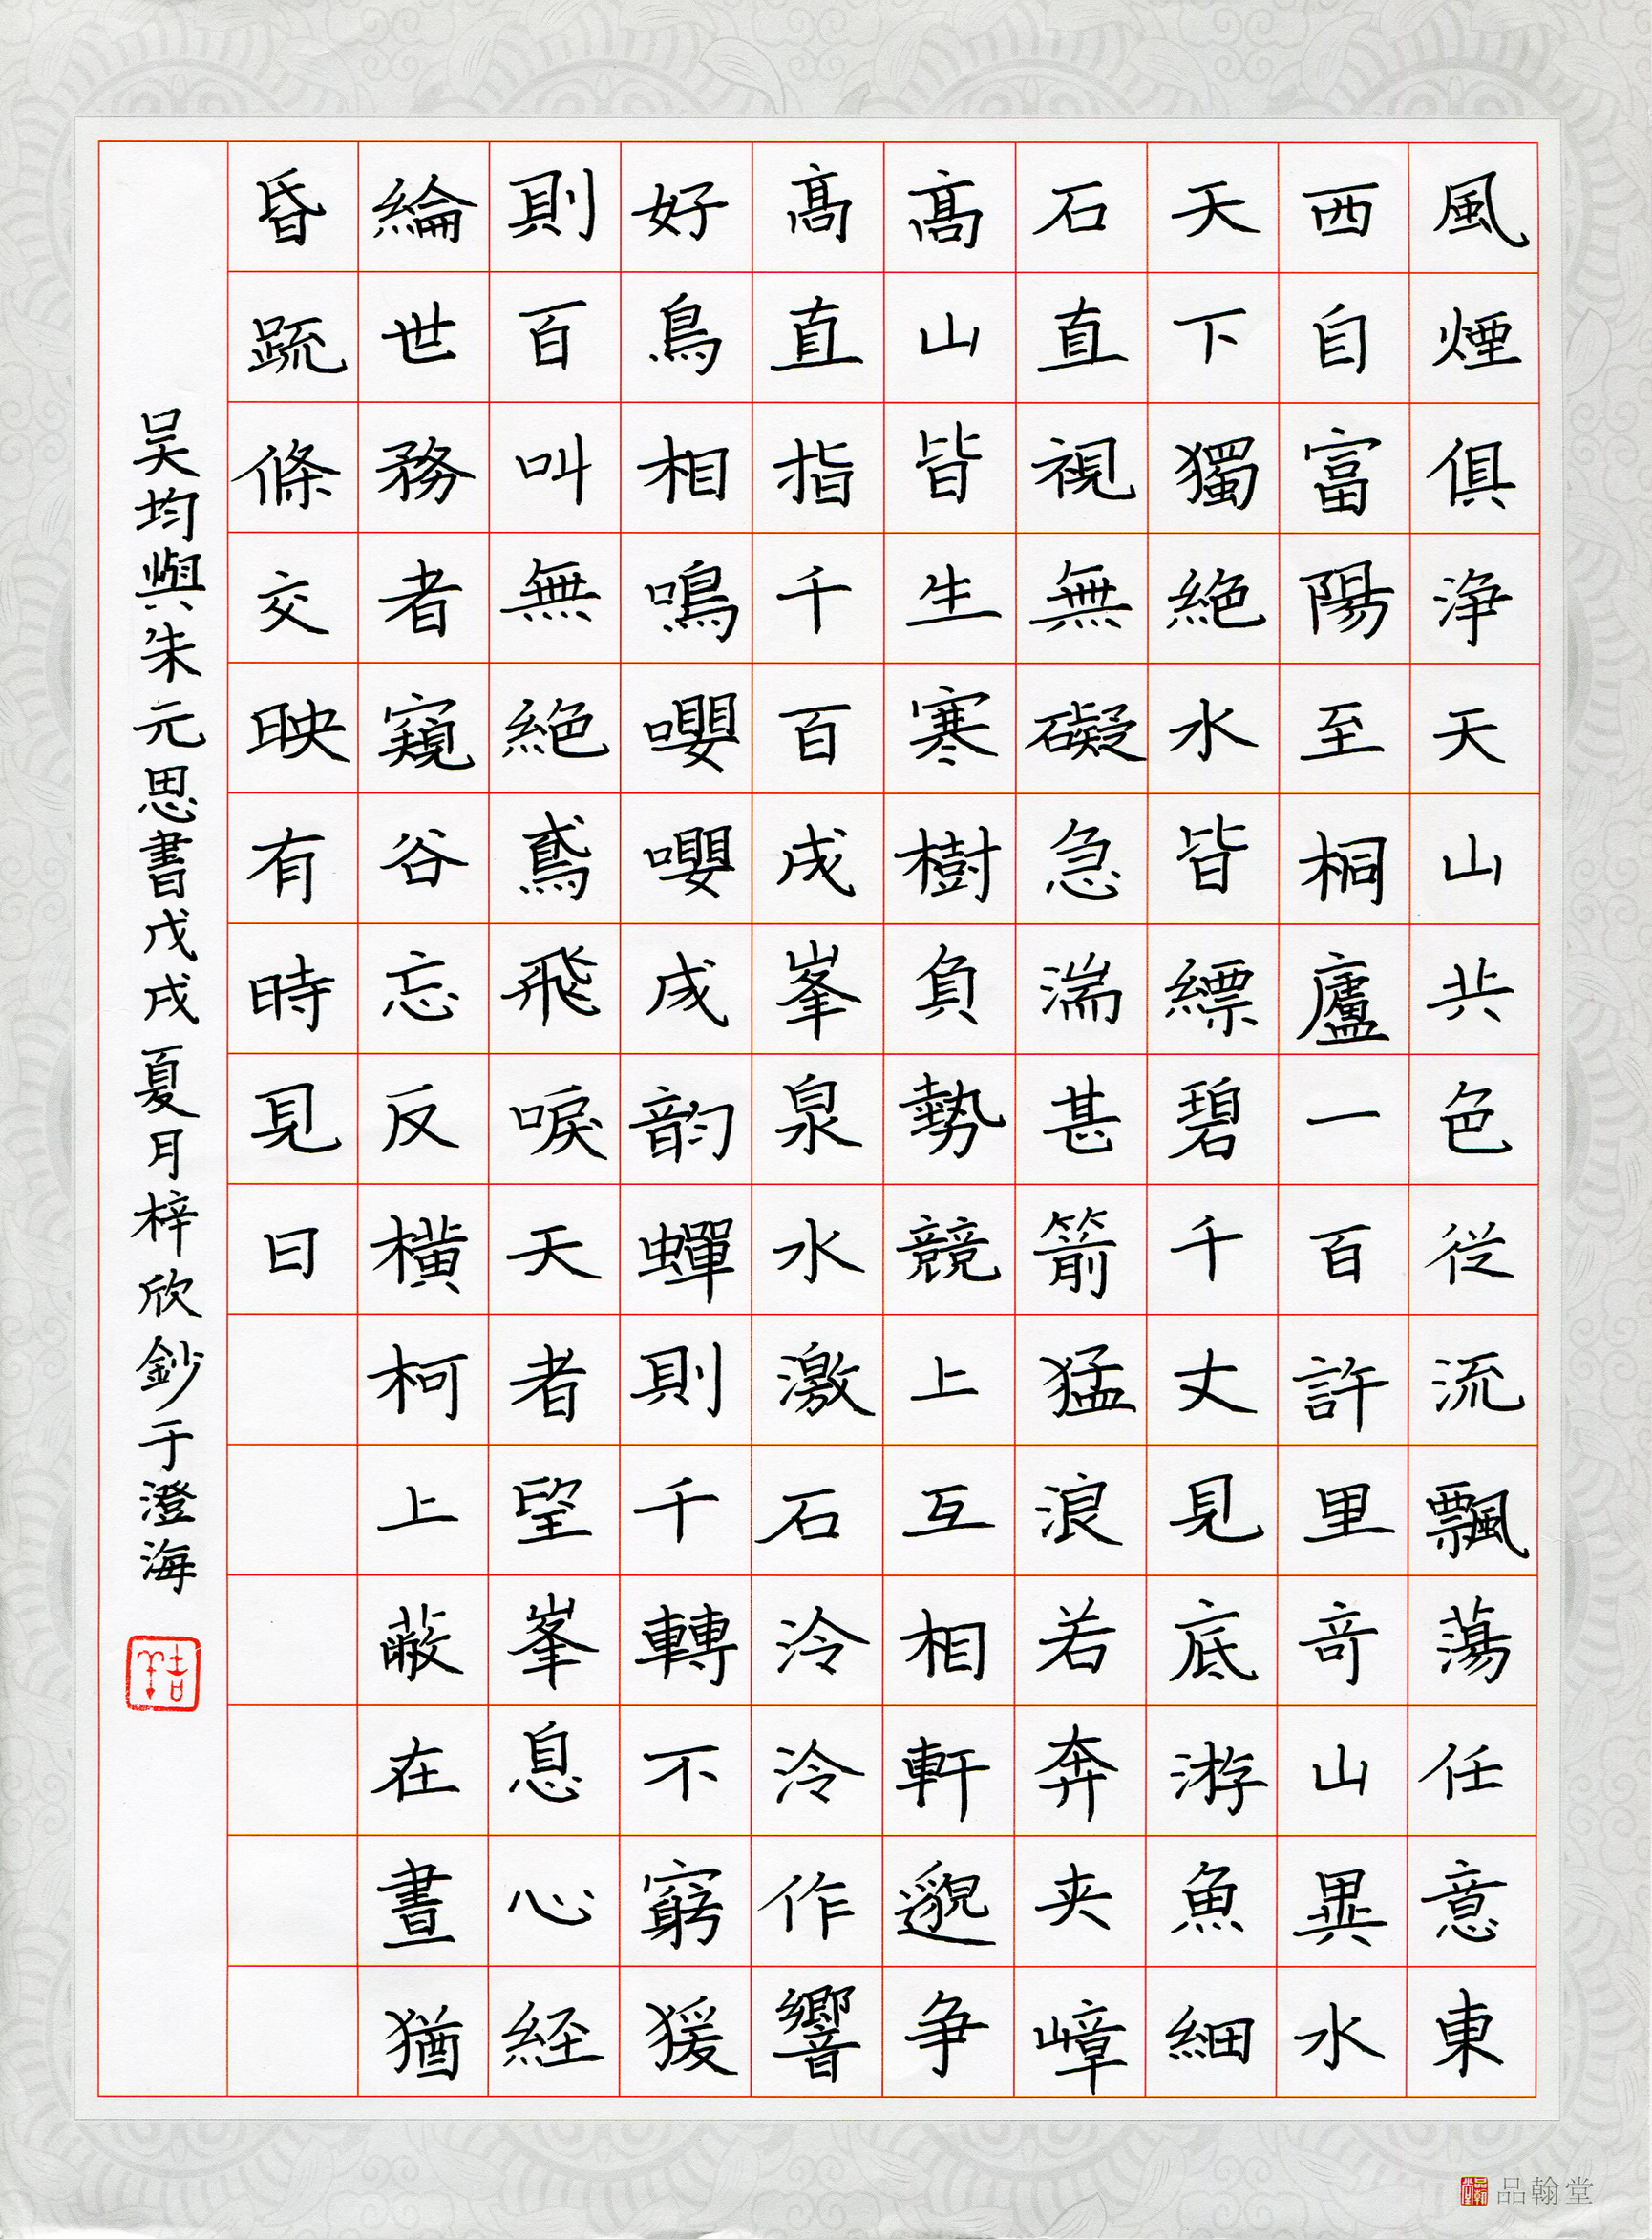 風煙俱浄天山共色從流飄蕩任意東
西自富陽至桐廬一百許里奇山異水
天下獨絕水皆縹碧千丈見底游魚細
石直視無礙急湍甚箭猛浪若奔夹嶂
高山皆生寒樹負勢競上互相軒邈争
高直指千百成峯泉水激石泠泠作響
好鳥相鳴嚶嚶成韵蟬則千轉不窮猨
則百叫無絕鳶飛唳天者望峯息心経
綸世務者窺谷忘反橫柯上蔽在晝猶
昏疏條交映有時見日
吴均與朱元思書戊戌夏月梓欣鈔于澄海
品翰堂